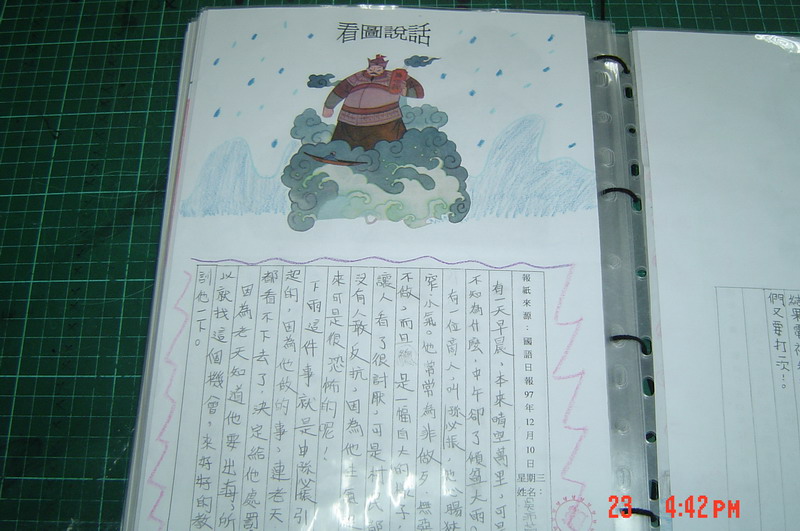 看圖說話
報紙來源：國語日報97年12月10日星期三
姓名：
有一天早晨，本來晴空萬里，可
不知為什麼，中午卻了傾盆大雨。
有一位商人，叫
窄小氣。他常常為非做歹、無
不做，而且總是一幅自大的樣子，
讓人看了很討厭，可是村民都
沒有人敢反抗，因為他生氣
來可是很恐怖的呢！
下雨這件事就是由張引
起的，因為他做的事，連老天
都看不下去了，決定給他處罰
因為老天知道他要出海了所
以就找這個機會，來好好的教
訓他一下。
結果電視
們又要打次！。
23 4:42PM